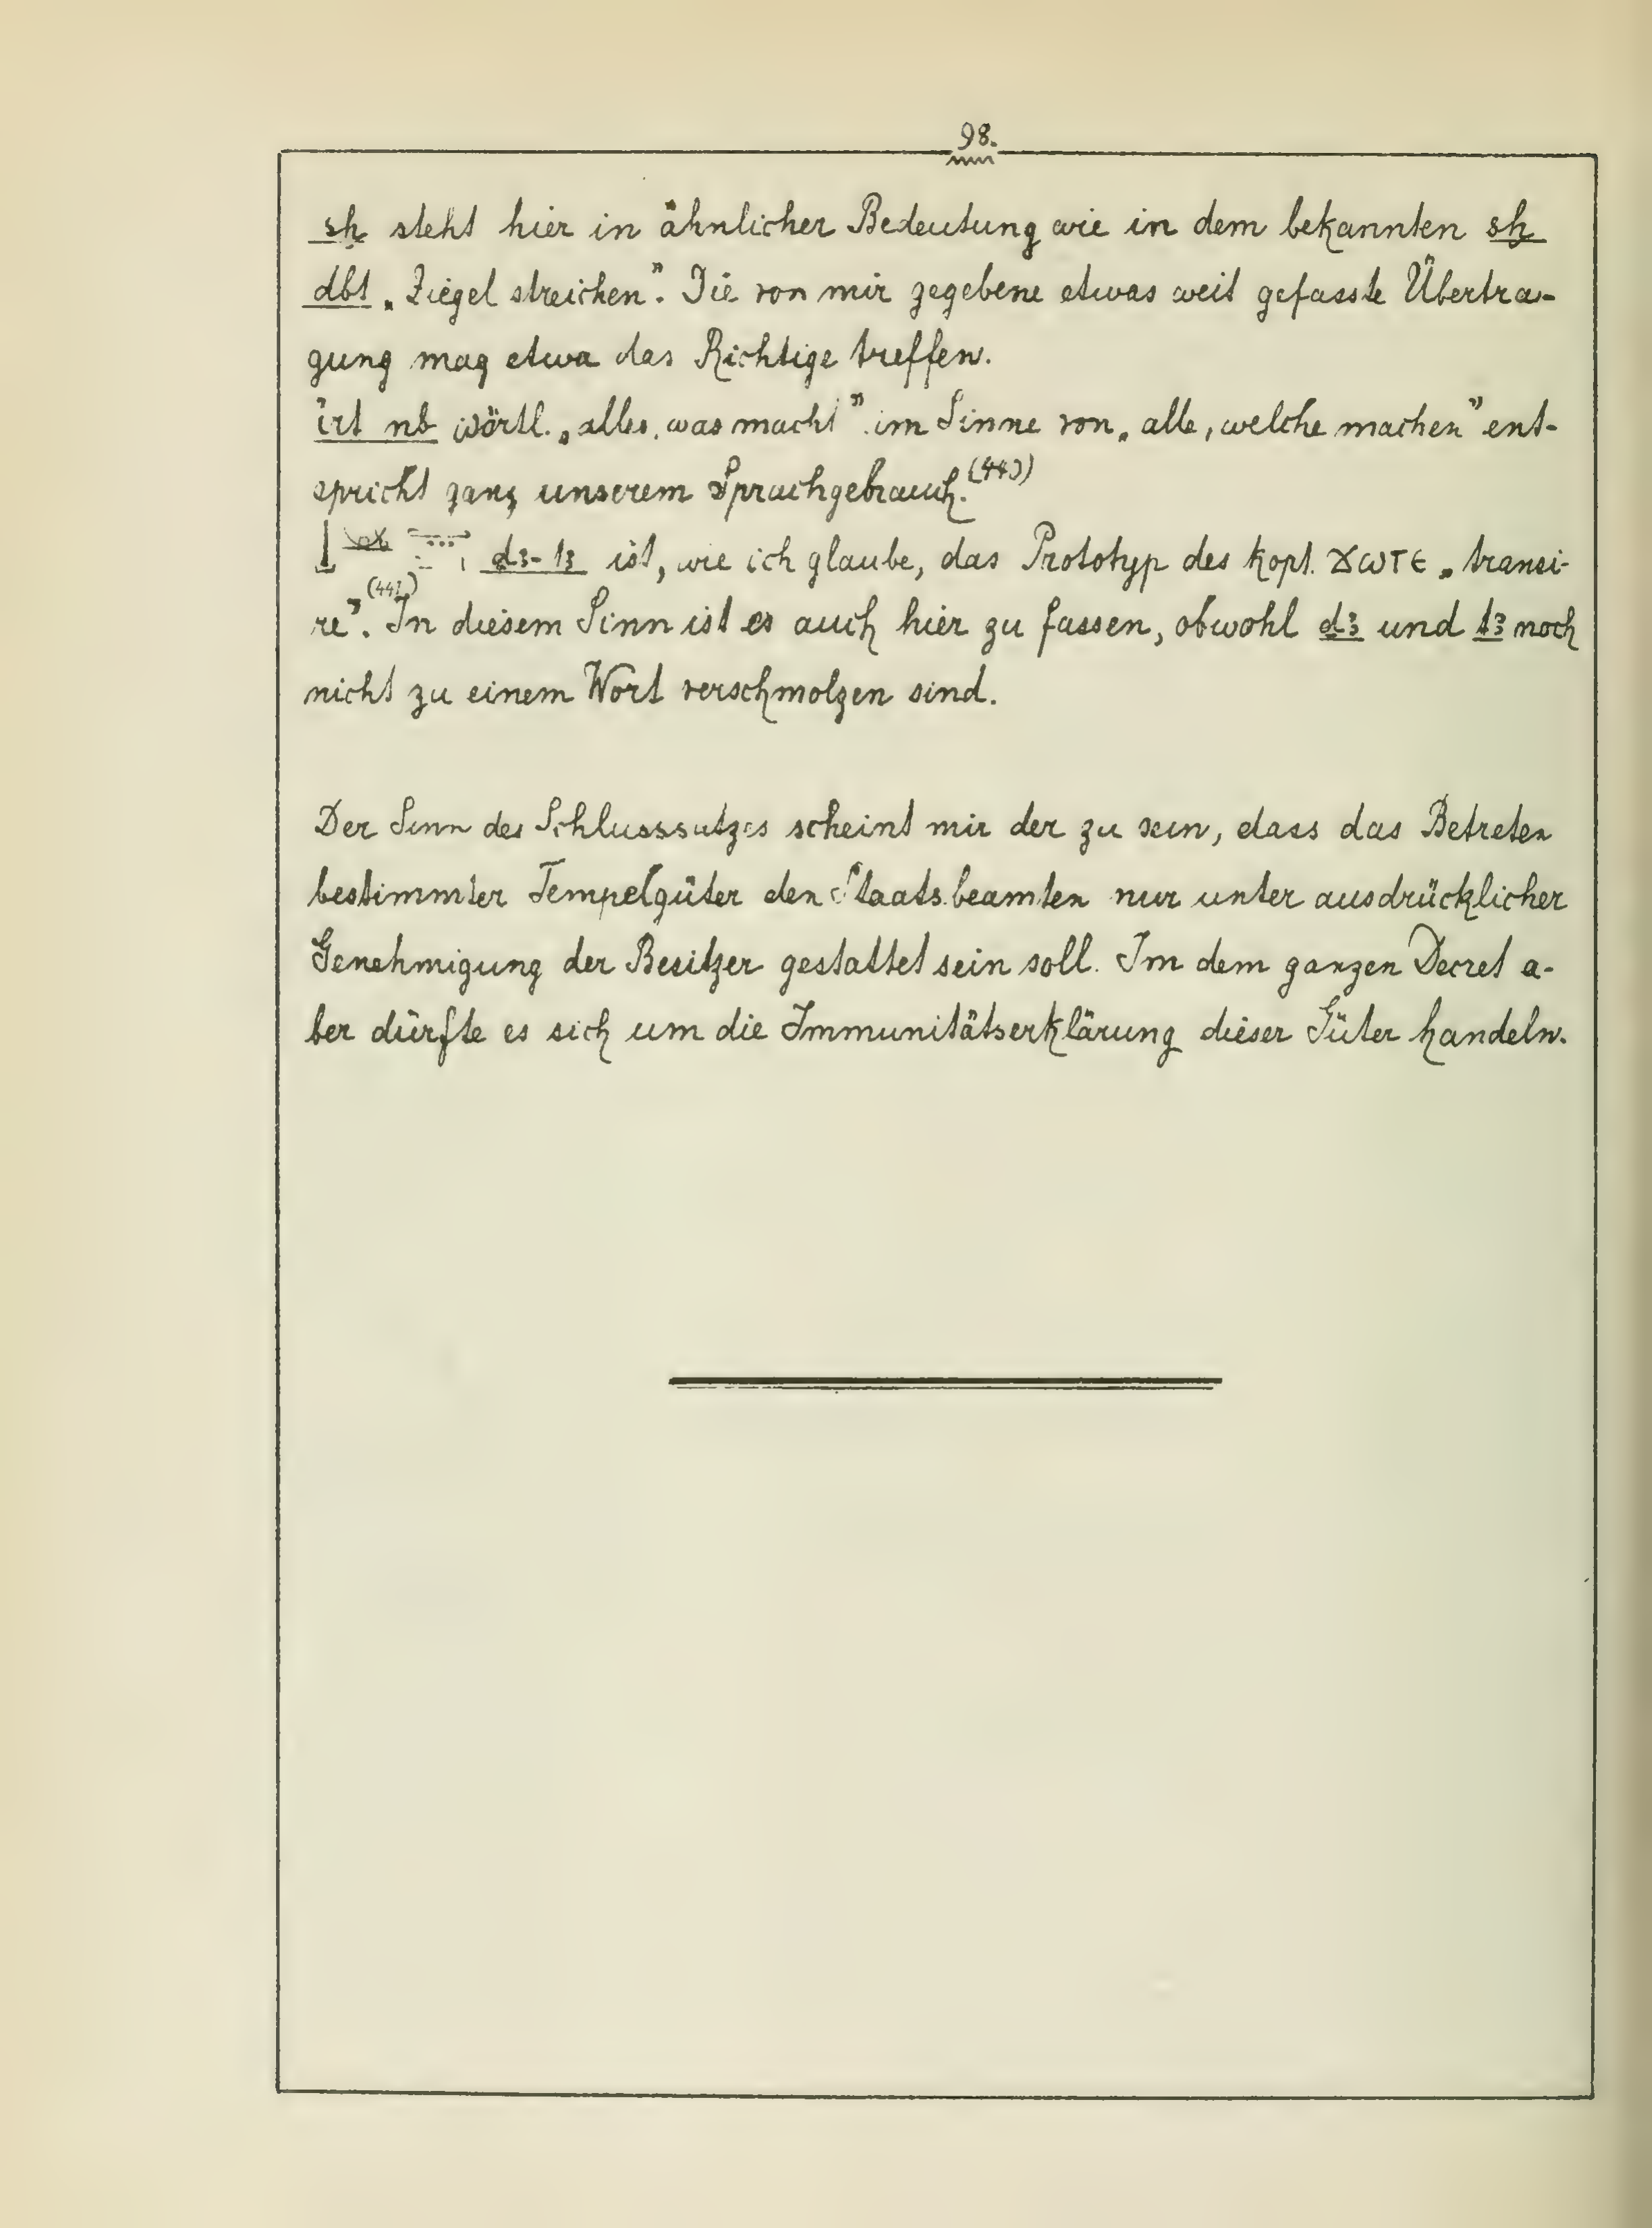 98.
sh steht hier in ähnlicher Bedeutung wie in dem bekannten sh
dbt „Ziegel streichen”. Die von mir gegebene etwas weit gefasste Übertra-
gung mag etwa das Richtige treffen.
irt nb wörtl. „alles, was macht” im Sinne von „alle, welche machen” ent-
spricht ganz unserem Sprachgebrauch.
d3-t3 ist, wie ich glaube, das Prototyp des kopt. ϫⲱⲧⲉ „transi-
re”. In diesem Sinn ist es auch hier zu fassen, obwohl d3 und t3 noch
nicht zu einem Wort verschmolzen sind.
Der Sinn des Schlusssatzes scheint mir der zu sein, dass das Betreten
bestimmter Tempelgüter den Staatsbeamten nur unter ausdrücklicher
Genehmigung der Besitzer gestattet sein soll. Im dem ganzen Decret a-
ber dürfte es sich um die Immunitätserklärung dieser Güter handeln.